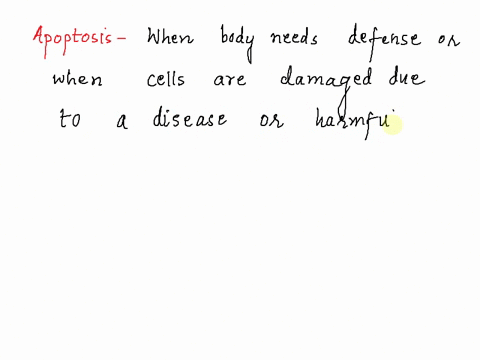 Apoptosis - When body needs defense or
when cells are damaged due
to a disease or harmfu